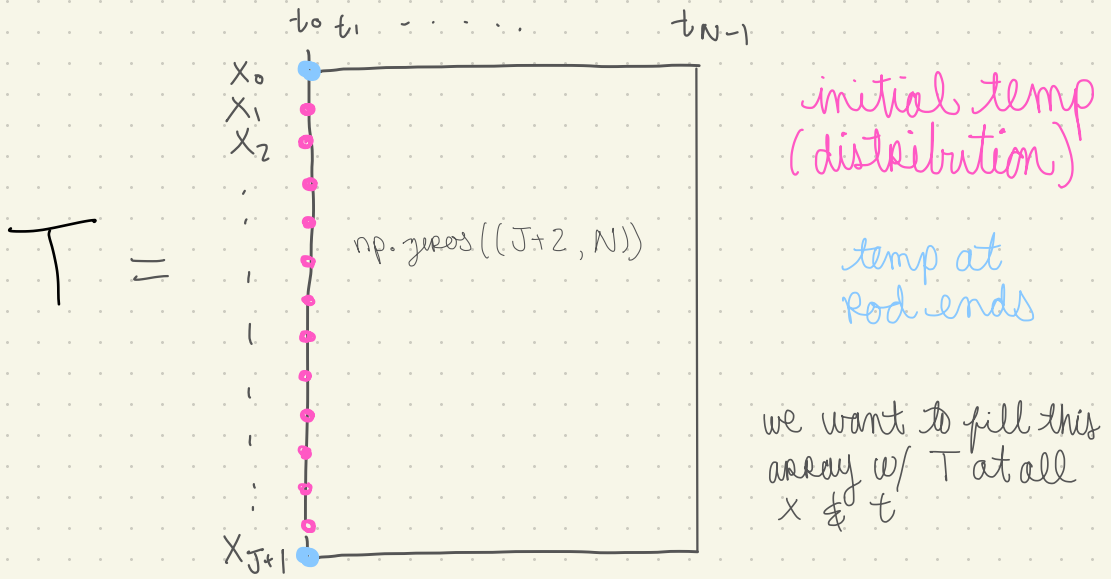 t₀ t₁ - · · · · t_{N-1}
x₀
x₁
x₂
x_{J+1}
T =
np.zeros((J+2, N))
initial temp
(distribution)
temp at
rod ends
we want to fill this
array w/ T at all
x & t